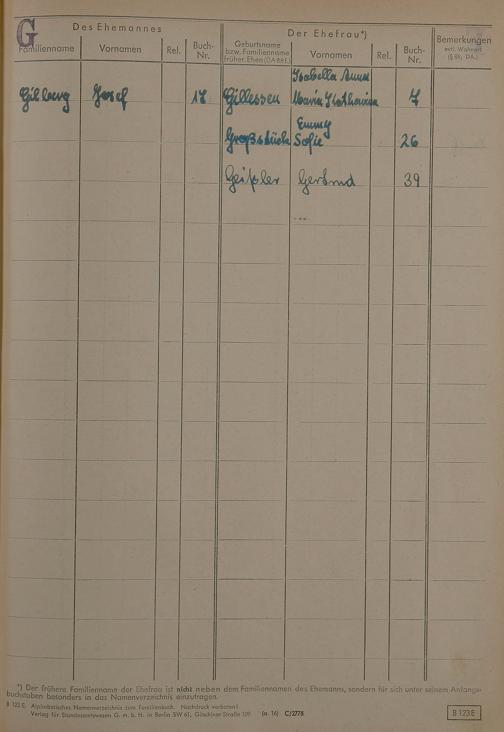 G
Des Ehemannes
Der Ehefrau*)
Familienname
Vornamen
Rel.
Buch-
Nr.
Geburtsname
bzw. Familienname
früher. Ehen (DA 881.)
Vornamen
Rel.
Buch-
Nr.
Bemerkungen
evtl. Wohnort
(§ 89, DA.)
Isabella Anna
Gilberg Josef 17 Gillessen Maria Katharina 7
Emmy
Großstück Sofie 26
Geißler Gertrud 39
*) Der frühere Familienname der Ehefrau ist nicht neben dem Familiennamen des Ehemanns, sondern für sich unter seinem Anfangs-
buchstaben besonders in das Namenverzeichnis einzutragen.
B 123 E. Alphabetisches Namenverzeichnis zum Familienbuch. Nachdruck verboten!
Verlag für Standesamtswesen G. m. b. H. in Berlin SW 61, Gitschiner Straße 109. (a. 16) C/2778
B 123 E